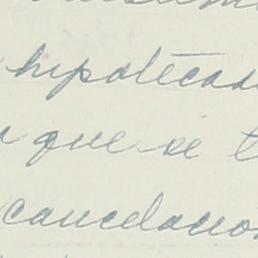 hipotecad
que se t
cancelacio